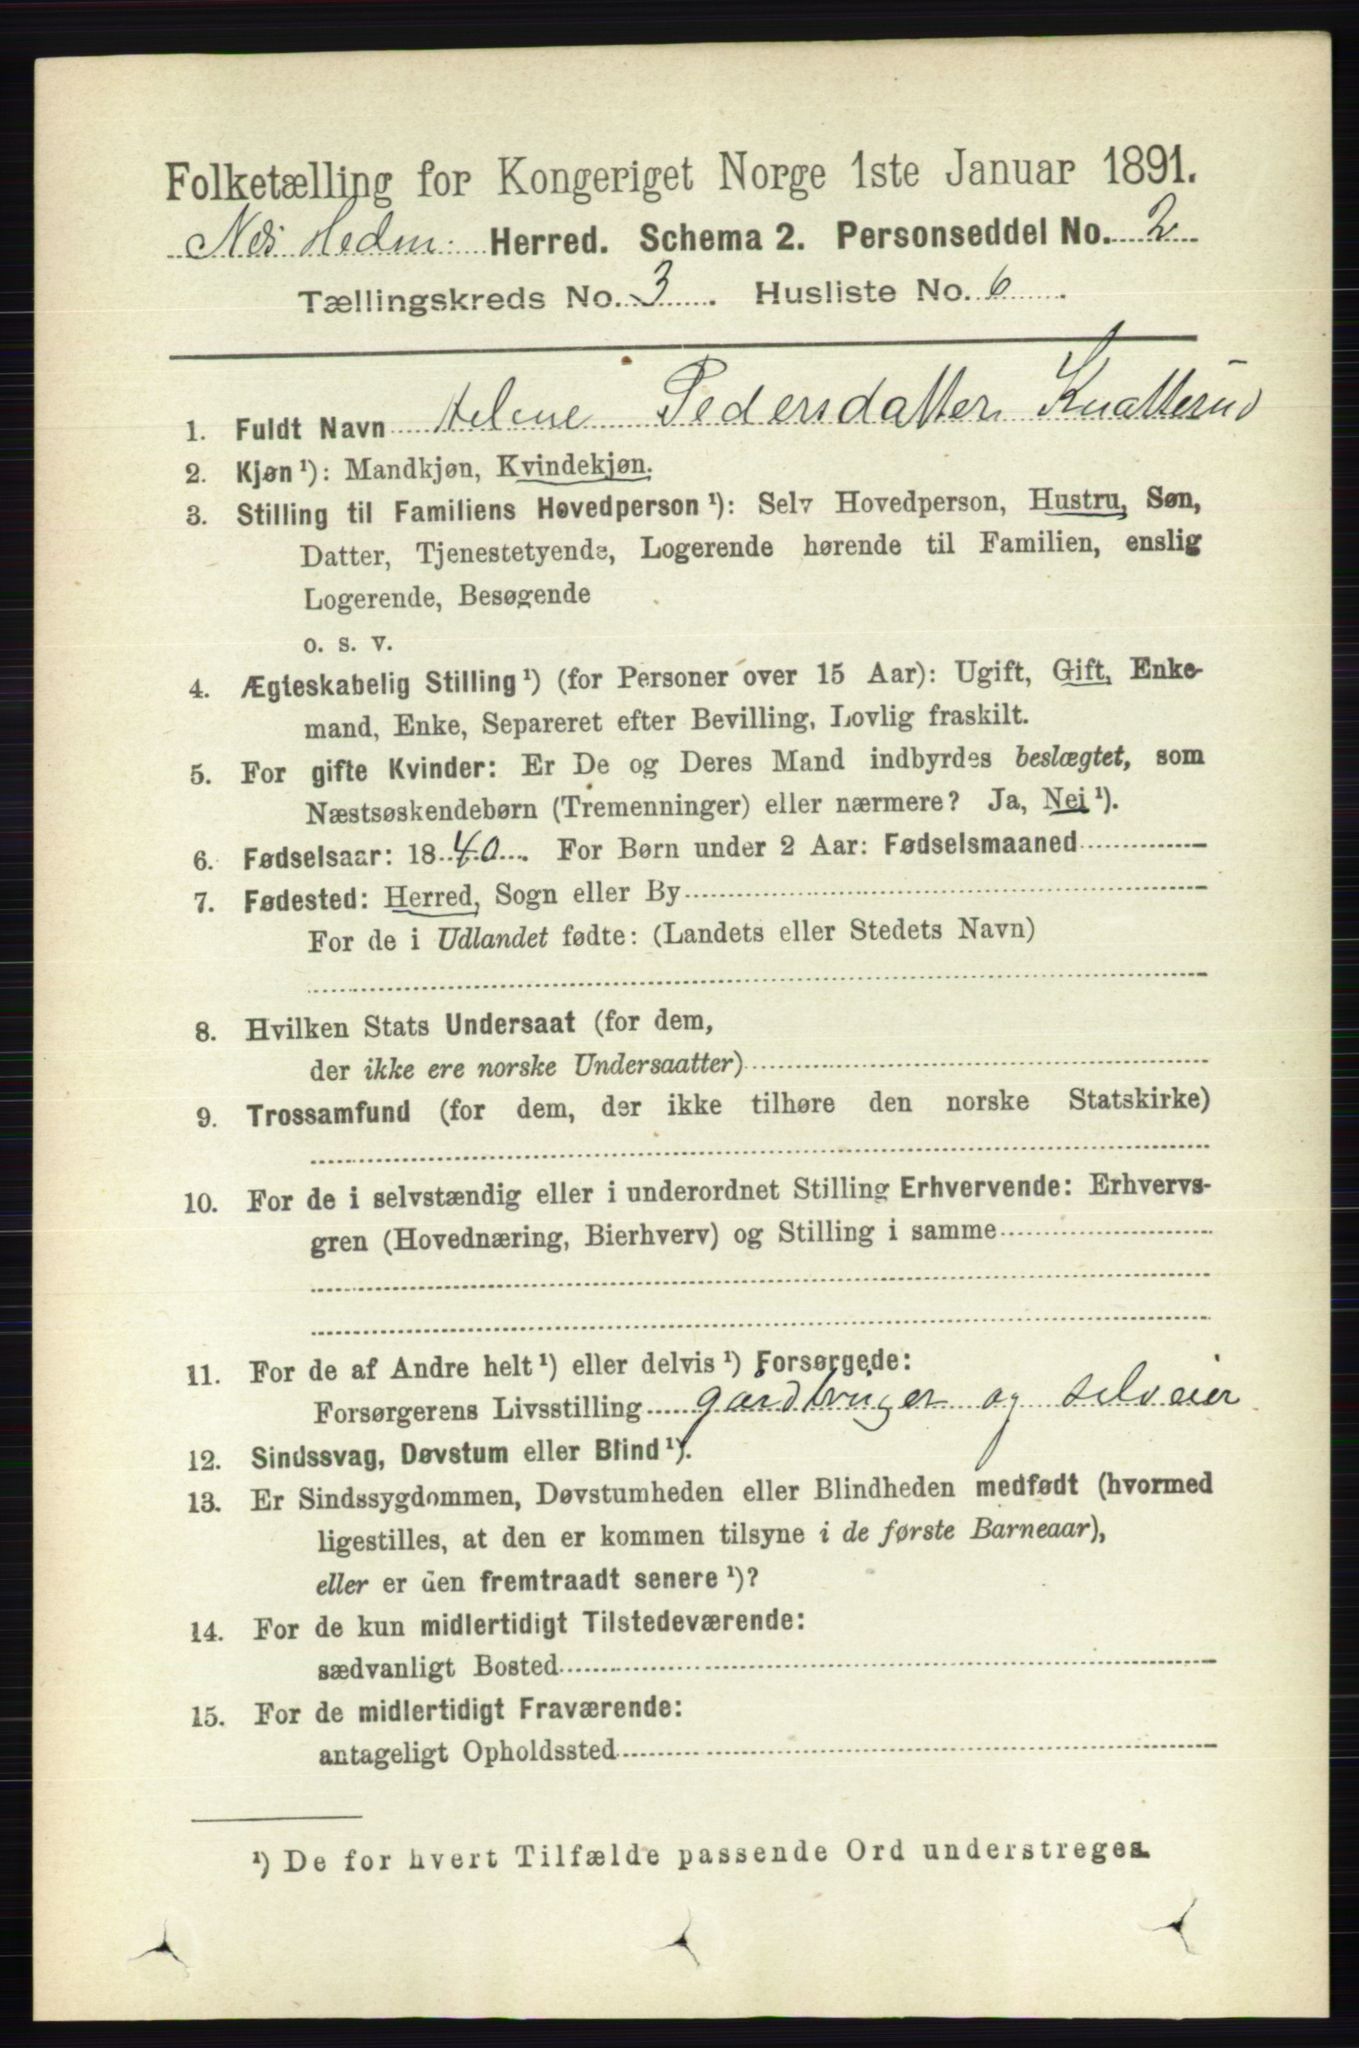 Folketælling for Kongeriget Norge 1ste Januar 1891.
Nes Hedm. Herred. Schema 2. Personseddel No. 2
Tællingskreds No. 3. Husliste No. 6.
1. Fuldt Navn Helene Pedersdatter Knatterud
2. Kjøn¹): Mandkjøn, Kvindekjøn.
3. Stilling til Familiens Hovedperson¹): Selv Hovedperson, Hustru, Søn,
Datter, Tjenestetyende, Logerende hørende til Familien, enslig
Logerende, Besøgende
o. s. v.
4. Ægteskabelig Stilling¹) (for Personer over 15 Aar): Ugift, Gift, Enke-
mand, Enke, Separeret efter Bevilling, Lovlig fraskilt.
5. For gifte Kvinder: Er De og Deres Mand indbyrdes beslægtet, som
Næstsøskendebørn (Tremenninger) eller nærmere? Ja, Nei¹).
6. Fødselsaar: 1840. For Børn under 2 Aar: Fødselsmaaned
7. Fødested: Herred, Sogn eller By
For de i Udlandet fødte: (Landets eller Stedets Navn)
8. Hvilken Stats Undersaat (for dem,
der ikke ere norske Undersaatter)
9. Trossamfund (for dem, der ikke tilhøre den norske Statskirke)
10. For de i selvstændig eller i underordnet Stilling Erhvervende: Erhvervs-
gren (Hovednæring, Bierhverv) og Stilling i samme
11. For de af Andre helt¹) eller delvis¹) Forsørgede:
Forsørgerens Livsstilling gardbruger og selveier
12. Sindssvag, Døvstum eller Blind¹).
13. Er Sindssygdommen, Døvstumheden eller Blindheden medfødt (hvormed
ligestilles, at den er kommen tilsyne i de første Barneaar),
eller er den fremtraadt senere¹)?
14. For de kun midlertidigt Tilstedeværende:
sædvanligt Bosted
15. For de midlertidigt Fraværende:
antageligt Opholdssted
¹) De for hvert Tilfælde passende Ord understreges.